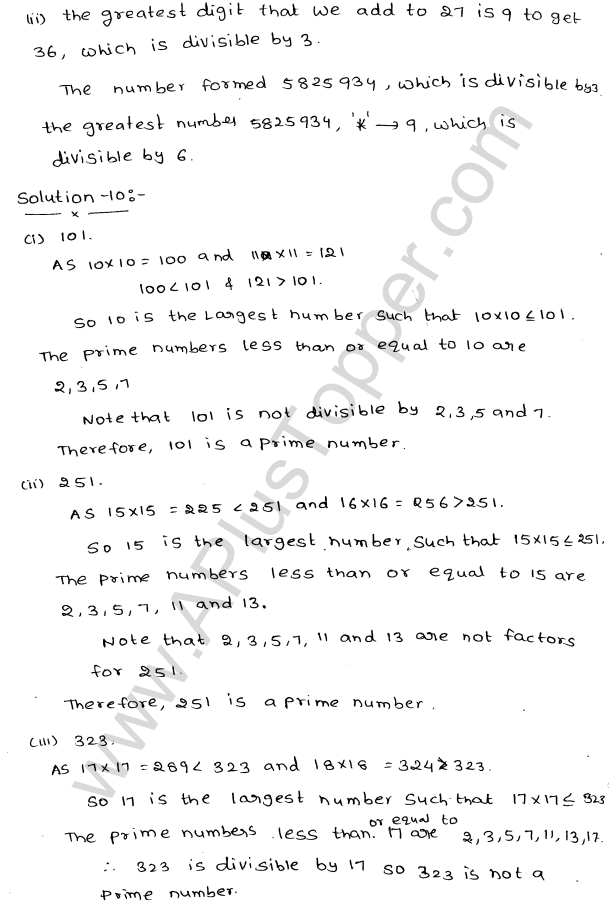 (ii) the greatest digit that we add to 27 is 9 to get
36, which is divisible by 3.
The number formed 5825934, which is divisible by 3
the greatest number 5825934, '*' → 9, which is
divisible by 6.
Solution -10:-
x
(i) 101.
As 10x10 = 100 and 11x11 = 121
100 < 101 & 121 > 101.
So 10 is the Largest number such that 10x10 ≤ 101.
The prime numbers less than or equal to 10 are
2,3,5,7
Note that 101 is not divisible by 2,3,5 and 7.
Therefore, 101 is a prime number.
(ii) 251.
As 15x15 = 225 < 251 and 16x16 = 256 > 251.
So 15 is the largest number, such that 15x15 ≤ 251.
The prime numbers less than or equal to 15 are
2,3,5,7,11 and 13.
Note that 2,3,5,7,11 and 13 are not factors
for 251.
Therefore, 251 is a prime number.
(iii) 323.
As 17x17 = 289 < 323 and 18x18 = 324 > 323.
So 17 is the largest number such that 17x17 ≤ 323
The prime numbers less than or equal to 17 are 2,3,5,7,11,13,17.
∴ 323 is divisible by 17 so 323 is not a
prime number.
www.APlusTopper.com